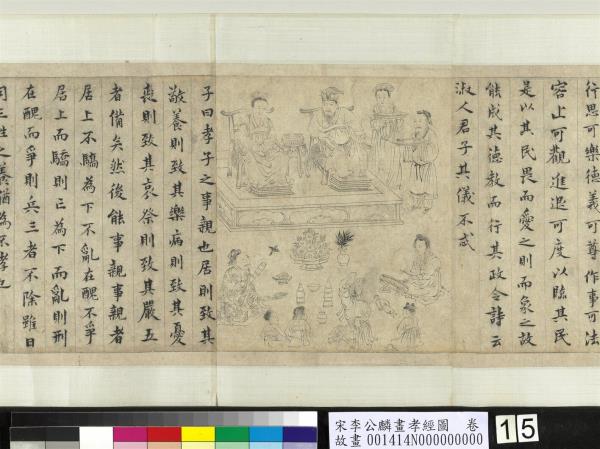 行思可樂德義可尊作事可法
容止可觀進退可度以臨其民
是以其民畏而愛之則而象之故
能成其德教而行其政令詩云
淑人君子其儀不忒
子曰孝子之事親也居則致其
敬養則致其樂病則致其憂
喪則致其哀祭則致其嚴五
者備矣然後能事親事親者
居上不驕為下不亂在醜不爭
居上而驕則亡為下而亂則刑
在醜而爭則兵三者不除雖日
用三牲之養猶為不孝也
宋李公麟畫孝經圖 卷
故畫 001414N000000000
15